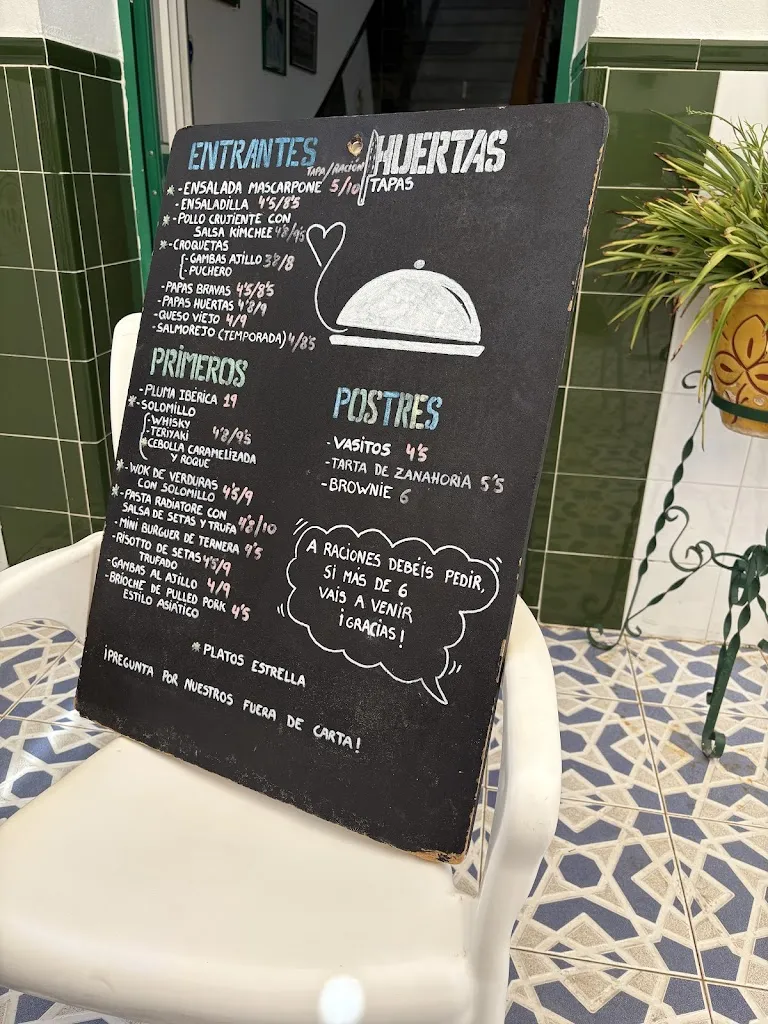 ENTRANTES
TAPA/RACIÓN
HUERTAS
TAPAS
*-ENSALADA MASCARPONE 5/10
-ENSALADILLA 4'5/8'5
*-POLLO CRUJIENTE CON
SALSA KIMCHEE 4'8/9'5
*-CROQUETAS
-GAMBAS AJILLO 3'8/8
-PUCHERO
-PAPAS BRAVAS 4'5/8'5
-PAPAS HUERTAS 4'8/9
-QUESO VIEJO 4/9
-SALMOREJO (TEMPORADA) 4/8'5
PRIMEROS
-PLUMA IBÉRICA 19
*-SOLOMILLO
-WHISKY
-TERIYAKI 4'8/9'5
*CEBOLLA CARAMELIZADA
Y ROQUE
*-WOK DE VERDURAS
CON SOLOMILLO 4'5/9
*-PASTA RADIATORE CON
SALSA DE SETAS Y TRUFA 4'8/10
-MINI BURGUER DE TERNERA 4'5
-RISOTTO DE SETAS 4'5/9
TRUFADO
-GAMBAS AL AJILLO 4/9
-BRIOCHE DE PULLED PORK
ESTILO ASIÁTICO 4'5
POSTRES
-VASITOS 4'5
-TARTA DE ZANAHORIA 5'5
-BROWNIE 6
A RACIONES DEBÉIS PEDIR,
SI MÁS DE 6
VAIS A VENIR
¡GRACIAS!
*PLATOS ESTRELLA
¡PREGUNTA POR NUESTROS FUERA DE CARTA!